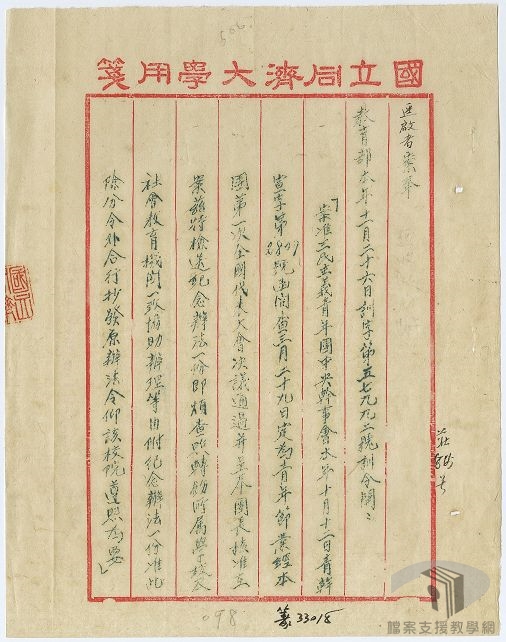 506
國立同濟大學用箋
逕啟者案奉
教育部本年十一月二十六日訓字第五七九九二號訓令開：
「案准三民主義青年團中央幹事會本年十月十二日青幹
宣字第2809號函開查三月二十九日定為青年節業經本
團第一次全國代表大會決議通過并呈奉團長核准在
案茲特檢送紀念辦法一份即煩查照轉飭所屬學校及
社會教育機關一致協助辦理等由附紀念辦法一份准此
除分令外合行抄發原辦法令仰該校院遵照為要」
098
33018
檔案支援教學網